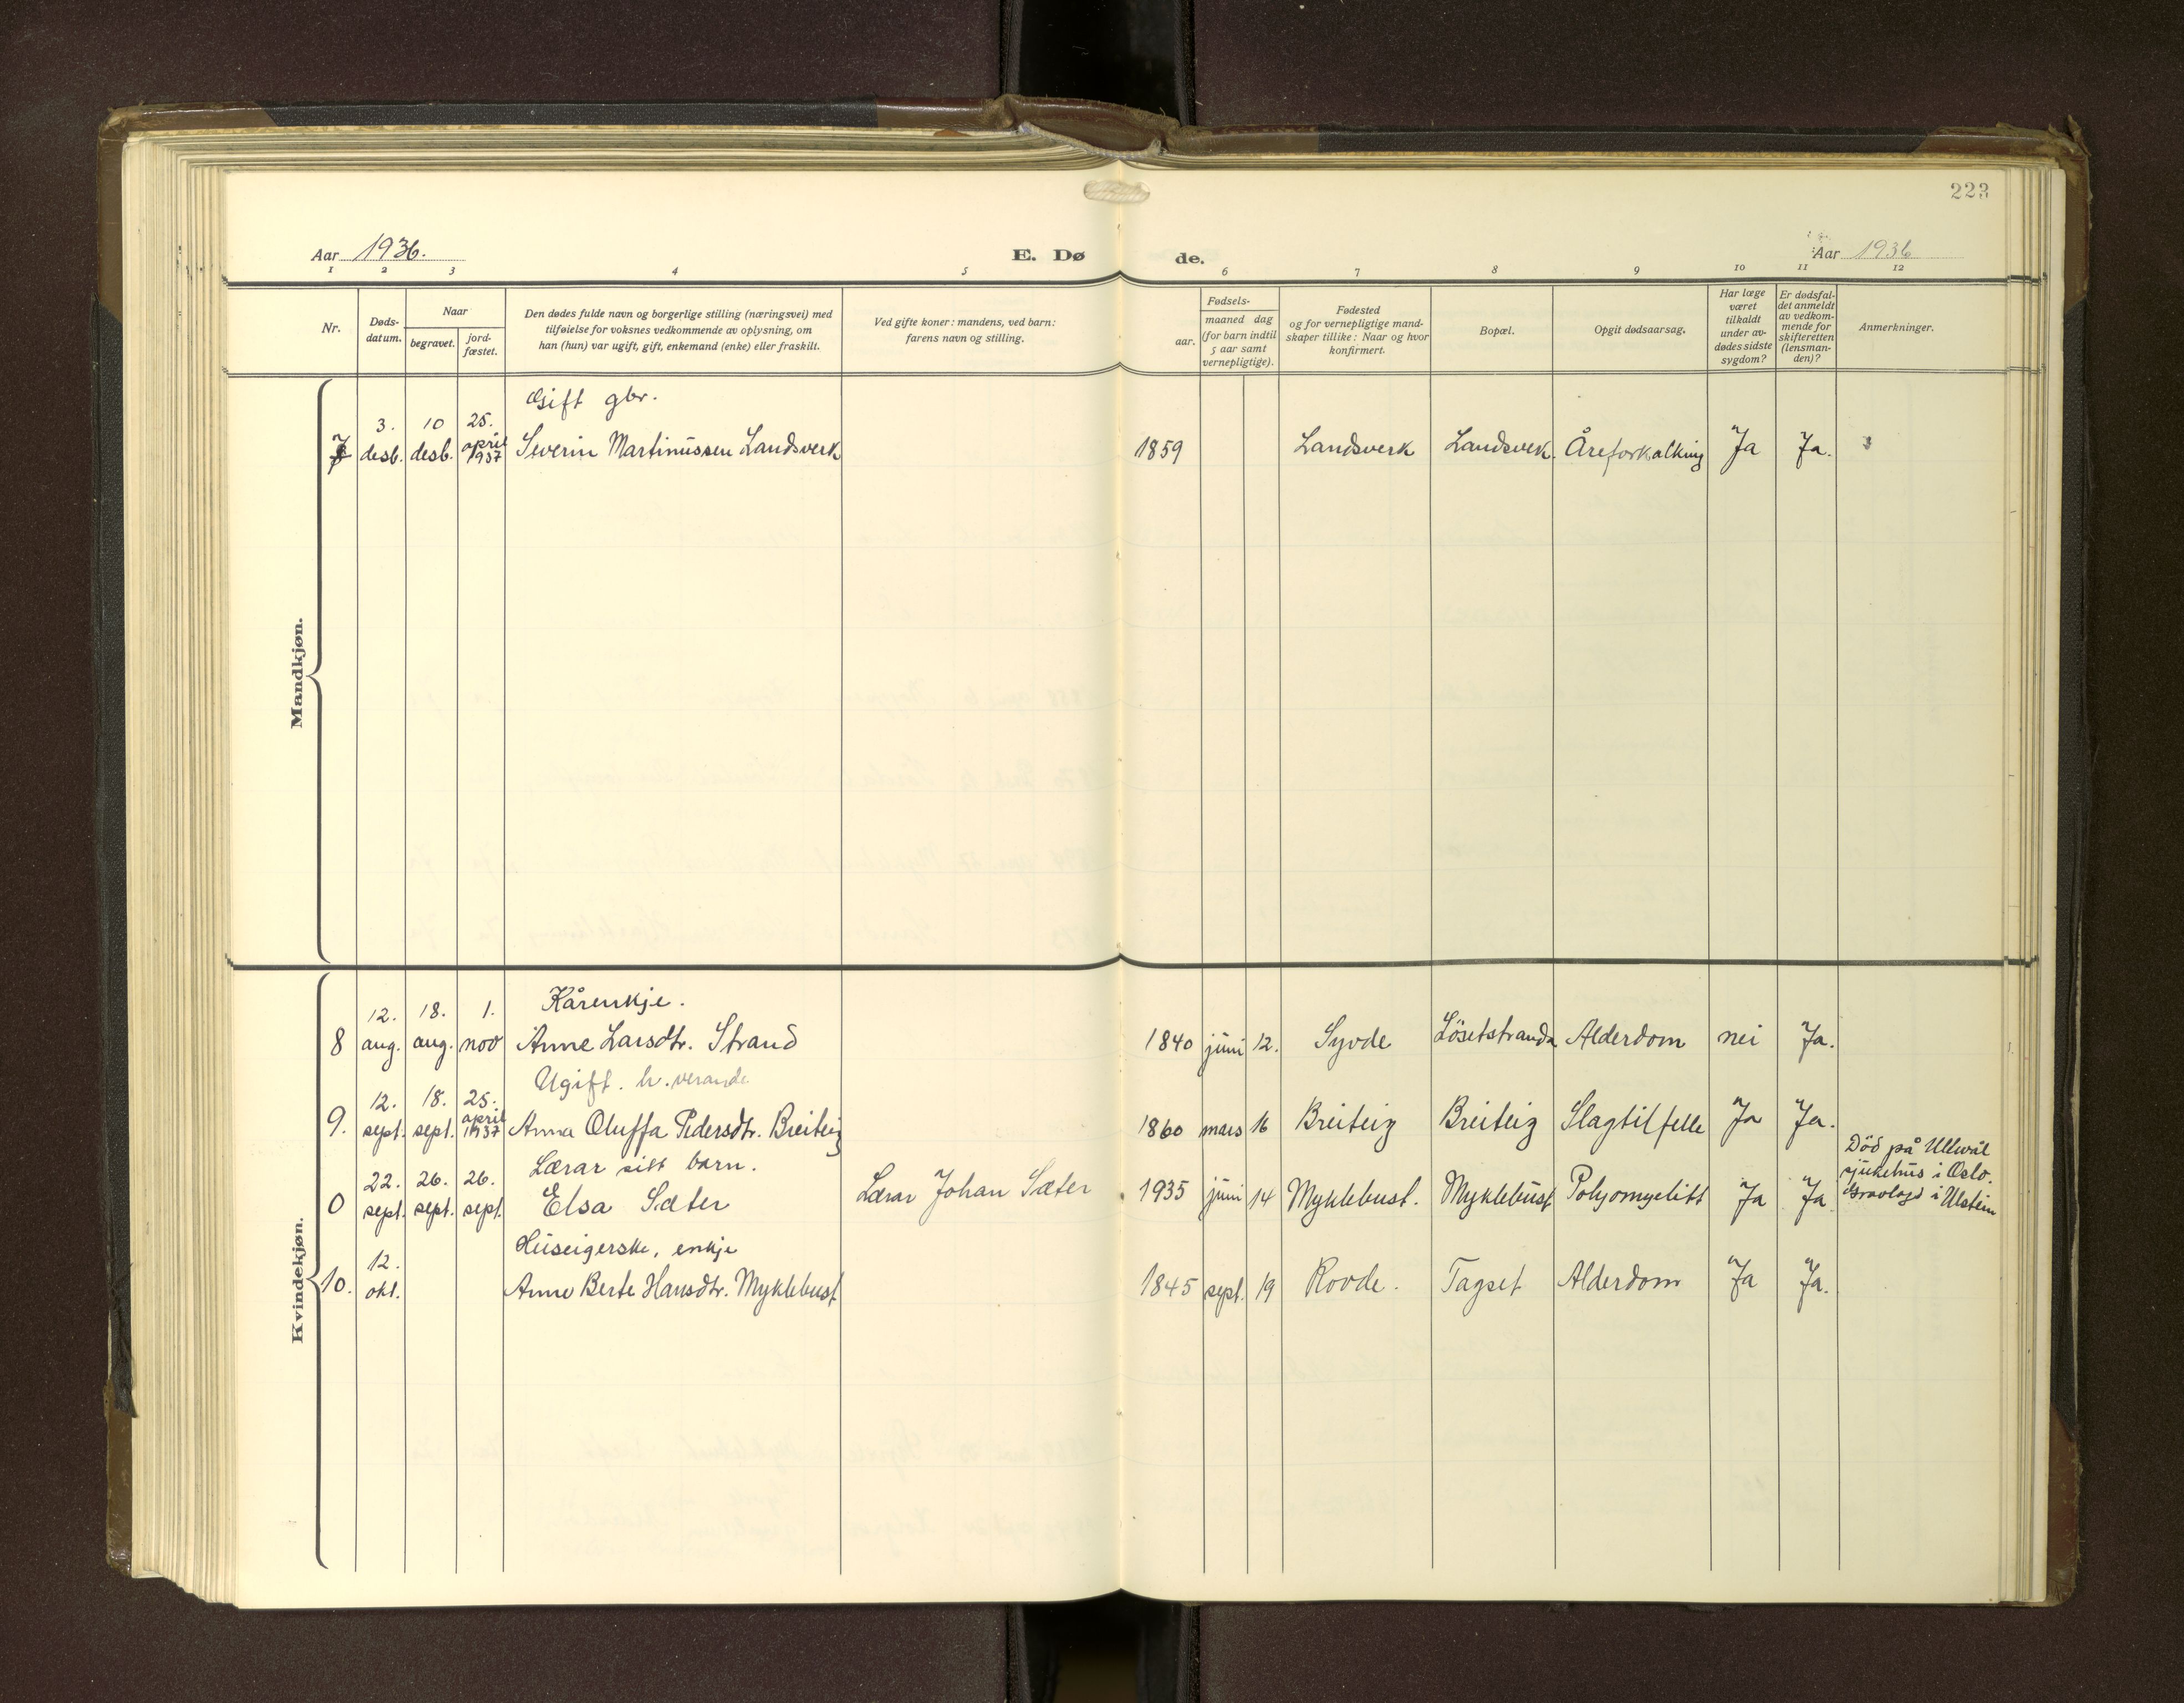 223
Aar 1936.
E. Dø
de.
Aar 1936
1 2 3 4 5 6 7 8 9 10 11 12
Nr.
Døds-
datum.
Naar
begravet.
jord-
fæstet.
Den dødes fulde navn og borgerlige stilling (næringsvei) med
tilføielse for voksnes vedkommende av oplysning, om
han (hun) var ugift, gift, enkemand (enke) eller fraskilt.
Ved gifte koner: mandens, ved barn:
farens navn og stilling.
Fødsels-
aar.
maaned dag
(for barn indtil
5 aar samt
vernepligtige).
Fødested
og for vernepligtige mand-
skaper tillike: Naar og hvor
konfirmert.
Bopæl.
Opgit dødsaarsag.
Har læge
været
tilkaldt
under av-
dødes sidste
sygdom?
Er dødsfal-
det anmeldt
av vedkom-
mende for
skifteretten
(lensman-
den)?
Anmerkninger.
Mandkjøn.
Gift gbr.
3. 10 25.
7 desb. desb. april 1937 Severin Martinussen Landsverk 1859 Landsverk Landsverk. Åreforkalking Ja Ja.
Kvindekjøn.
Kårenkje.
12. 18. 1.
8 aug. aug. nov Anne Larsdtr. Strand 1840 juni 12. Syvde Løsetstranda Alderdom nei Ja.
Ugift. h.verande
12. 18. 25.
9. sept. sept. april 1937 Anna Oluffa Pedersdtr. Breiteig 1860 mars 16 Breiteig Breiteig Slagtilfelle Ja Ja.
Lærar sitt barn.
22. 26. 26.
0 sept. sept. sept. Elsa Sæter Lærar Johan Sæter 1935 juni 14 Myklebust. Myklebust Polyomyelitt Ja Ja.
Död på Ullevål
sjukehus i Oslo.
Gravlagd i Ulstein
Huseigerske, enkje
12.
10. okt. Anne Berte Hansdtr. Myklebust 1845 sept. 19 Rovde. Tagset Alderdom Ja Ja.